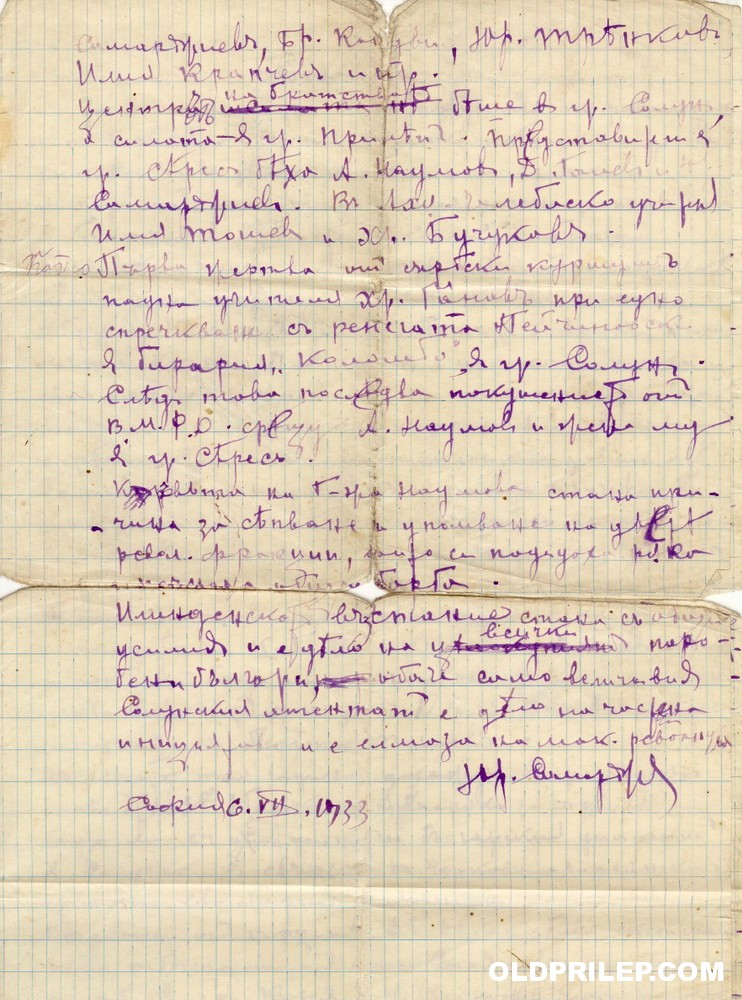 Самарджиевъ, Бр. Кощуви, Юр. Трѣнковъ
Илия Крапчевъ и пр.
на братството
Центра бѣше в гр. Солунъ
а силата – в гр. Прилѣпъ. Представители въ
гр. Сѣресъ бѣха А. Наумовъ, Д. Ганевъ и
Самарджиев. Въ учеше
Илия Тошев и Хр. Бучуковъ.
Първа жертва от сърбски куршумъ
падна учителя Хр. Гановъ при едно
спречкване съ ренегата Пейчиновски
в бирария „Коломбо“ в гр. Солунъ.
Слѣдъ това последва покушение от
В.М.Ф.О. срещу А. Наумов и жена му
в гр. Сѣресъ.
Кръвьта на Г-жа Наумова стана при-
чина за сѣпване и упомване на двѣтѣ
револ. фракции, които си подадоха рѫка
борба.
Илинденското възстание стана съ общи
всички
усилия и е дѣло на поро-
бени българи, обаче само величавия
Солунския атентат е дѣло на частна
инициатива и е елмаза на мак. революция
Юр. Самарджиев
София 6. VII. 1933
OLDPRILEP.COM